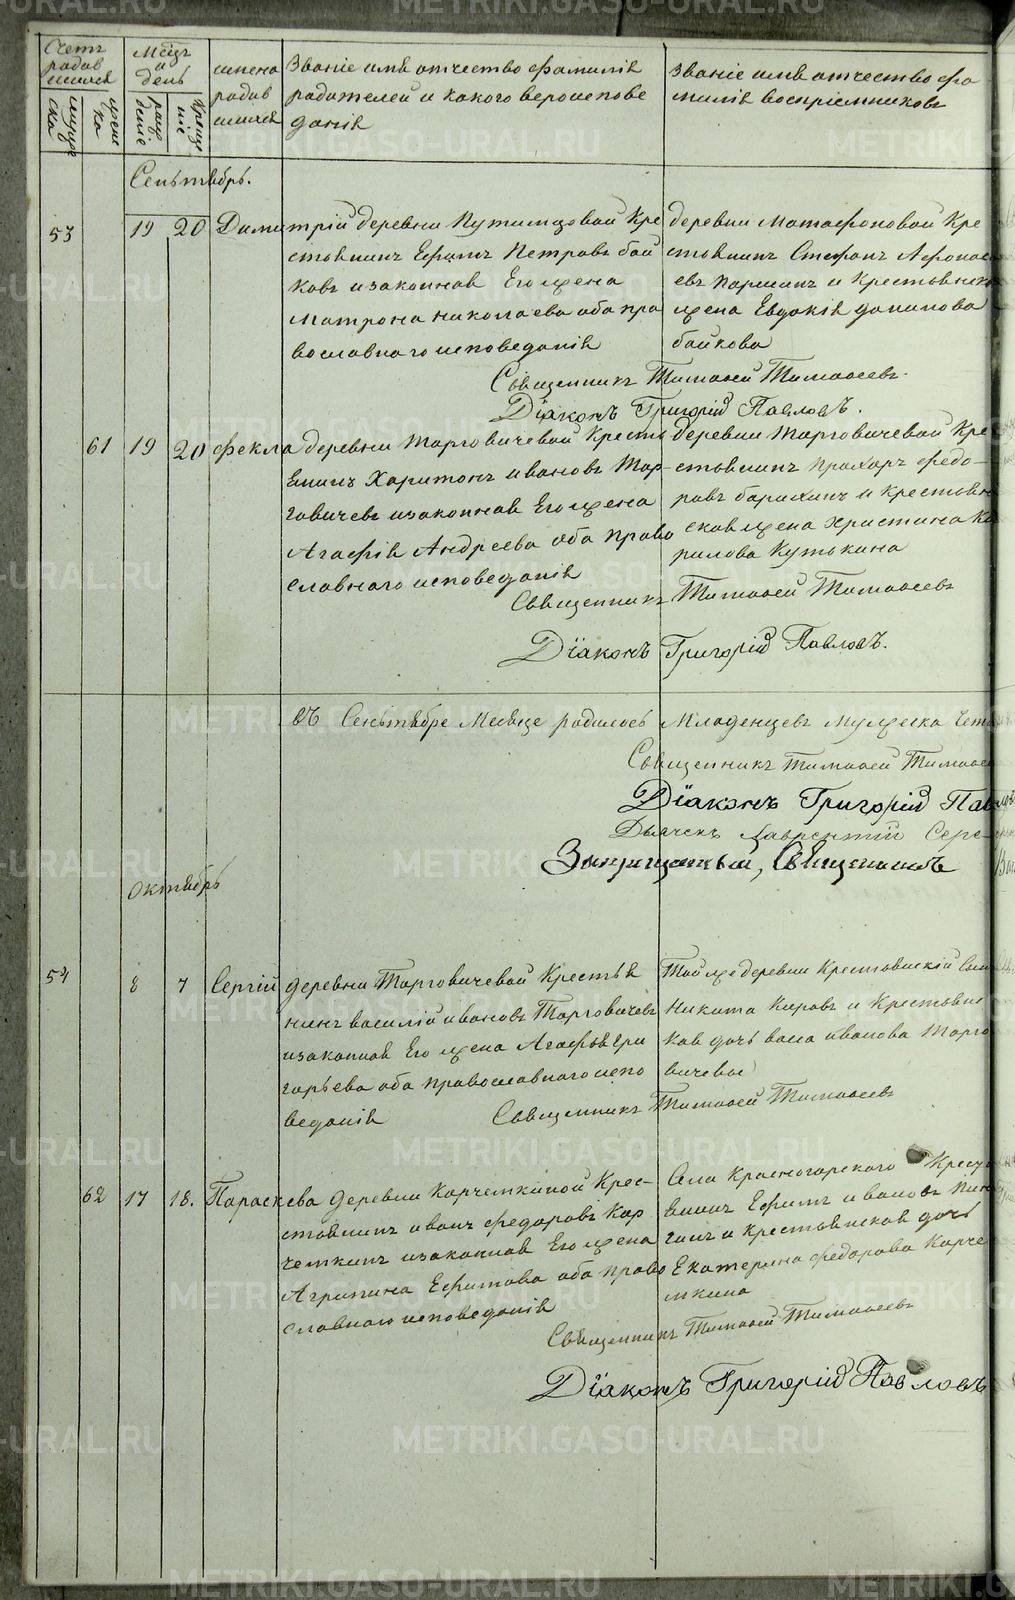 Счетъ родившихся
мужеска
женска
Месяцъ и день
рождение
крещение
имена родившихся
Званіе имя отчество Фамилія
родателей и какого вероиспове
данія
Званіе имя отчество фа
милія воспріемниковъ
Сеньтябрь.
53 19 20 Димитрій деревни Путимцовой Кре
стьянинъ Ефимъ Петровъ бай
ковъ и законная Его жена
Матрона николаева оба пра
вославного исповеданія
деревни Матафоновой Кре
стьянинъ Стефанъ Афонась
евъ Паршинъ и Крестьянска
жена Евдокія данилова
байкова
Священникъ Тимофей Тимофеевъ.
Діаконъ Григорій Павловъ.
61 19 20 фекла деревни Торговичевой Кресть
янинъ Харитонъ ивановъ Тор-
говичевъ и законная Его жена
Агафія Андреева оба право
славного исповеданія
деревни Торговичевой Кре
стьянинъ прохоръ федо-
ровъ барахинъ и крестьян
ская жена христина Ка
рилова Кутькина
Священникъ Тимофей Тимофеевъ
Діаконъ Григорій Павловъ.
въ Сеньтябре Месяце родилось Младенцевъ Мужеска Чет
Священникъ Тимофей Тимофе
Діаконъ Григорій Пав
Дьячекъ Лаврентій Сере
Запрещенный, Священникъ
Октябрь
54 8 7 Сергій деревни Торговичевой Крестья
нинъ василій ивановъ Торговичевъ
и законная Его жена Агафья гри
горьева оба православного испо
веданія
Той же деревни Крестьянскій Сынъ
Никита Кировъ и Крестьянс
кая дочь васа иванова Торго
вичева
Священникъ Тимофей Тимофеевъ
62 17 18. Параскева деревни Корчемкиной Крес-
стьянинъ иванъ федоровъ Кор
чемкинъ и законная Его жена
Агрипина Ефимова оба право
славного исповеданія
Села Красногорского Кресть
янинъ Ефимъ ивановъ Пин
гинъ и крестьянская дочь
Екатерина федорова Корче
мкина
Священникъ Тимофей Тимофеевъ
Діаконъ Григорій Павловъ
METRIKI.GASO-URAL.RU